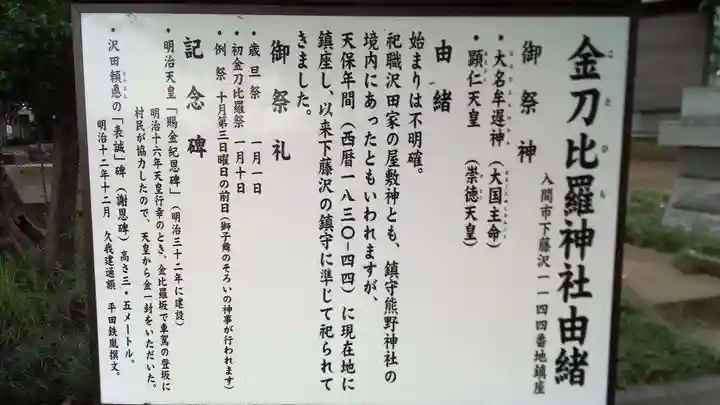 金刀比羅神社由緒
ことひら
入間市下藤沢一一四四番地鎮座
御祭神
・大名牟遅神（大国主命）
・顕仁天皇（崇徳天皇）
由緒
始まりは不明確。
祀職沢田家の屋敷神とも、鎮守熊野神社の
境内にあったともいわれますが、
天保年間（西暦一八三〇-四四）に現在地に
鎮座し、以来下藤沢の鎮守に準じて祀られて
きました。
御祭礼
・歳旦祭 一月一日
・初金刀比羅祭 一月十日
・例祭 十月第三日曜日の前日（獅子舞のそろいの神事が行われます）
記念碑
・明治天皇「賜金紀恩碑」（明治三十二年に建設）
明治十六年天皇行幸のとき、金比羅坂で車駕の登坂に
村民が協力したので、天皇から金一封をいただいた。
・沢田頼悳の「表誠」碑（謝恩碑）高さ三・五メートル。
明治十二年十二月 久我建通額 平田鉄胤撰文。